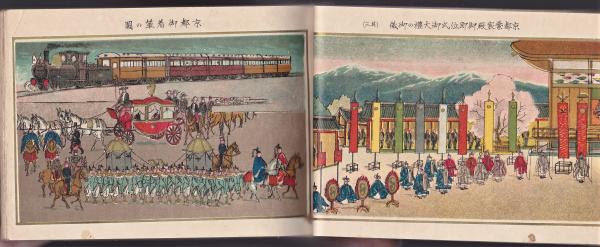 圖の輦着御都京
京都紫宸殿御即位式御大禮の御儀 (其二)